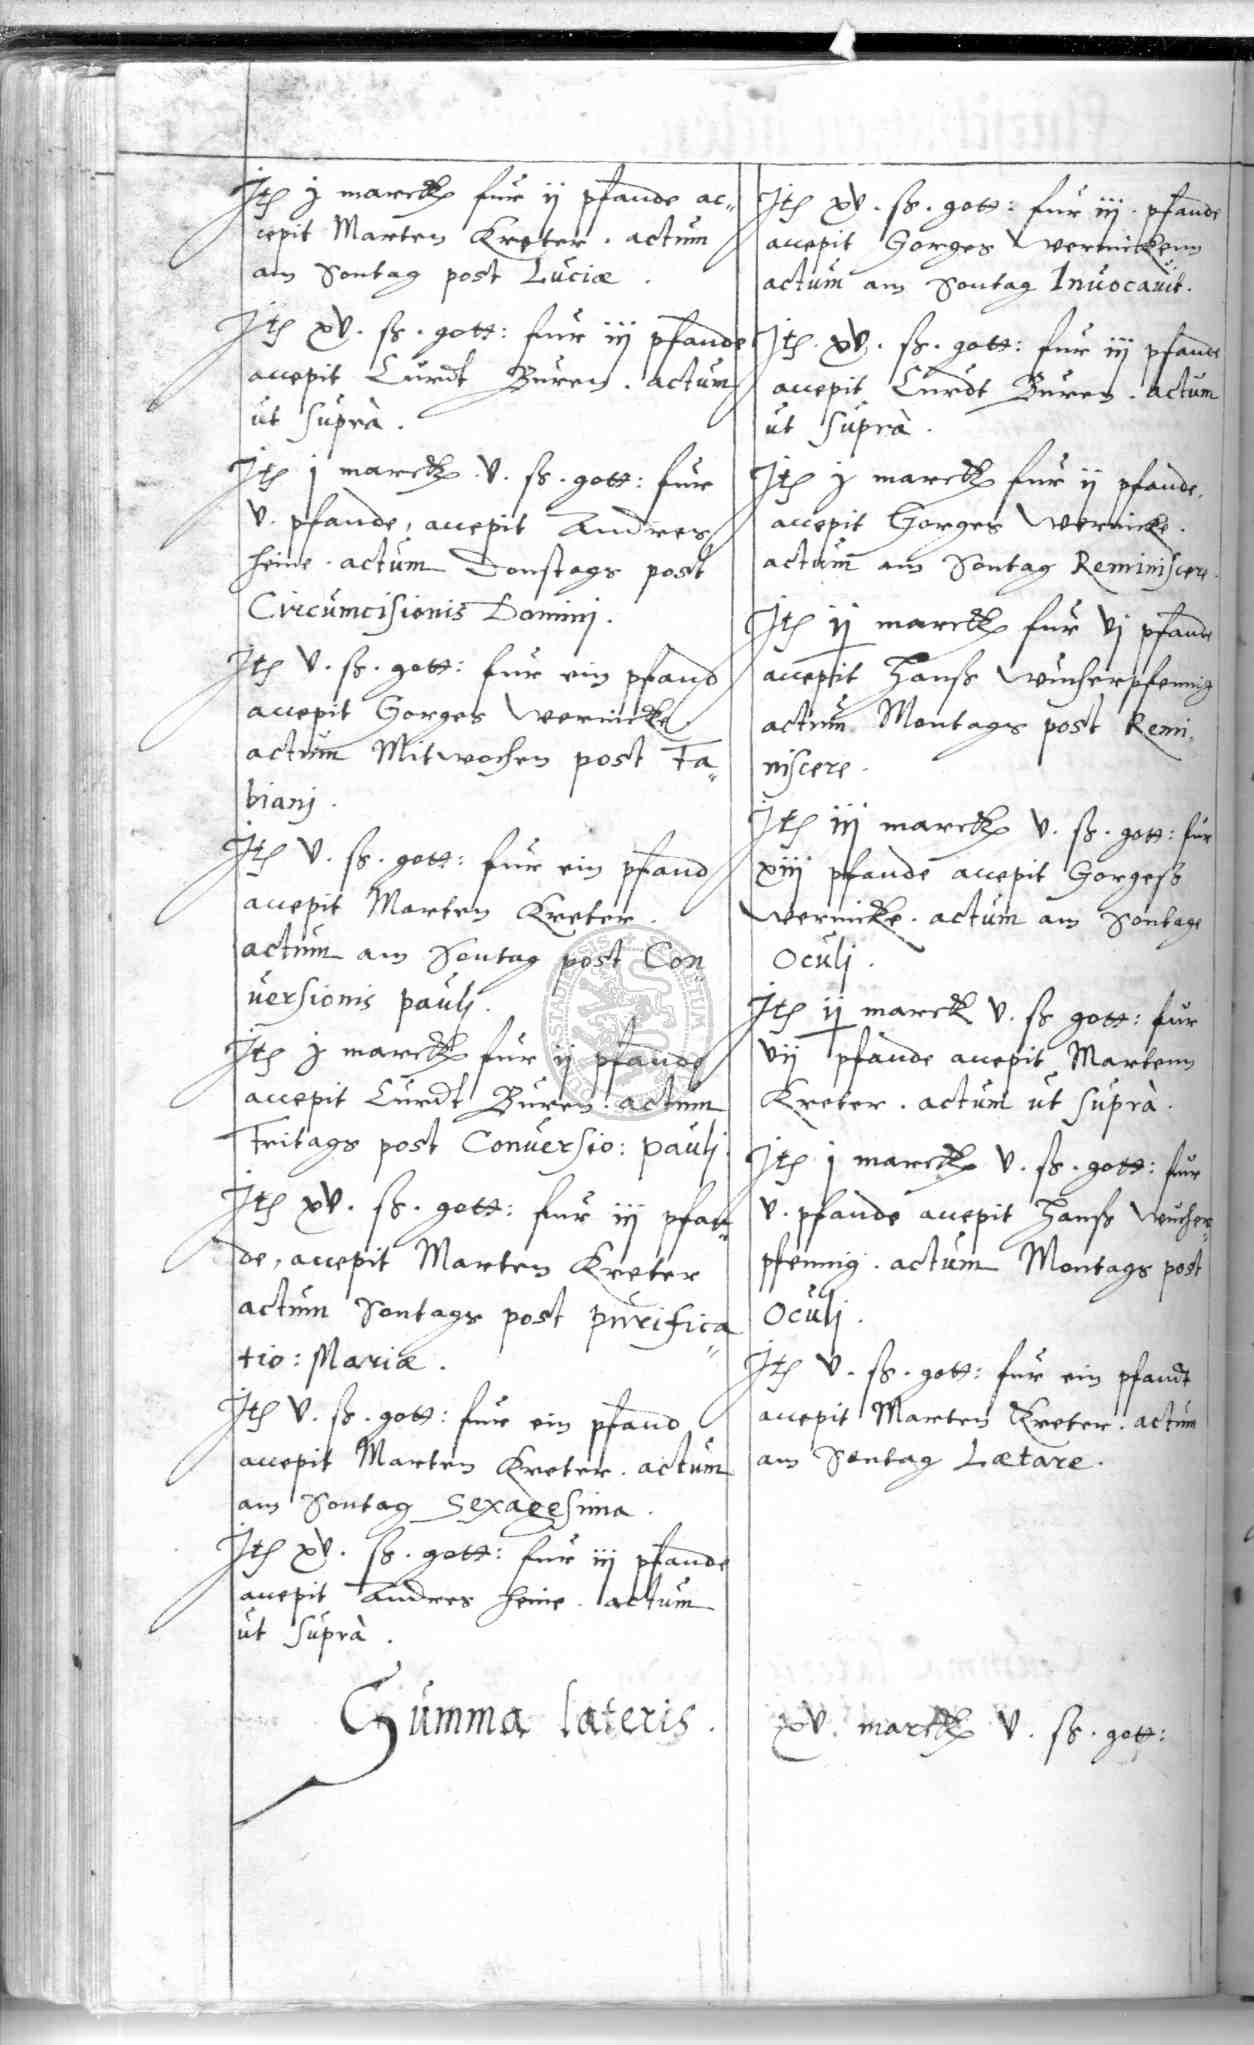 Jtem j marck fur ij pfande ac„
cepit Marten Kreter . actum
am Sontag post Luciæ .
Jtem xv . ß . gott : fur iij pfande
accepit Curdt Buren . actum
ut suprà .
Jtem j marck . v . ß . gott : fur
v . pfande , accepit Andres
Heine . actum Donstags post
Circumcisionis Domini .
Jtem v . ß . gott : fur ein pfand
accepit Gorges Wernicke .
actum Mitwochen post Fa„
biani .
Jtem v . ß . gott : fur ein pfand
accepit Marten Kreter .
actum am Sontag post Con„
versionis pauli .
Jtem j marck fur ij pfande
accepit Curdt Buren . actum
Fritags post Conversio : pauli .
Jtem xv . ß . gott : fur iij pfan„
de , accepit Marten Kreter
actum Sontags post purifica„
tio : Mariæ .
Jtem v . ß . gott : fur ein pfand
accepit Marten Kreter . actum
am Sontag Sexagesima .
Jtem xv . ß . gott : fur iij pfande
accepit Andres Heine . actum
ut suprà .
Summa lateris .
Jtem xv . ß . gott : fur iij . pfande
accepit Gorges Wernickenn
actum am Sontag Invocavit .
Jtem . xv . ß . gott : fur iij pfande
accepit Curdt Buren . actum
ut suprà .
Jtem j marck fur ij pfande ,
accepit Gorges Wernicke .
actum am Sontag Reminiscere .
Jtem ij marck fur vj pfande
accepit Hanß Wucherpfennig
actum Montags post Remi„
niscere .
Jtem iij marck v . ß . gott : fur
xiij pfande accepit Gorgeß
Wernicke . actum am Sontage
Oculi .
Jtem ij marck v . ß gott : fur
vij pfande accepit Martenn
Kreter . actum ut suprà .
Jtem j marck v . ß . gott : fur
v . pfande accepit Hanß Wucher„
pfennig . actum Montags post
Oculi .
Jtem v . ß . gott : fur ein pfandt
accepit Marten Kreter . actum
am Sontag Lætare .
xv . marck v . ß . gott :